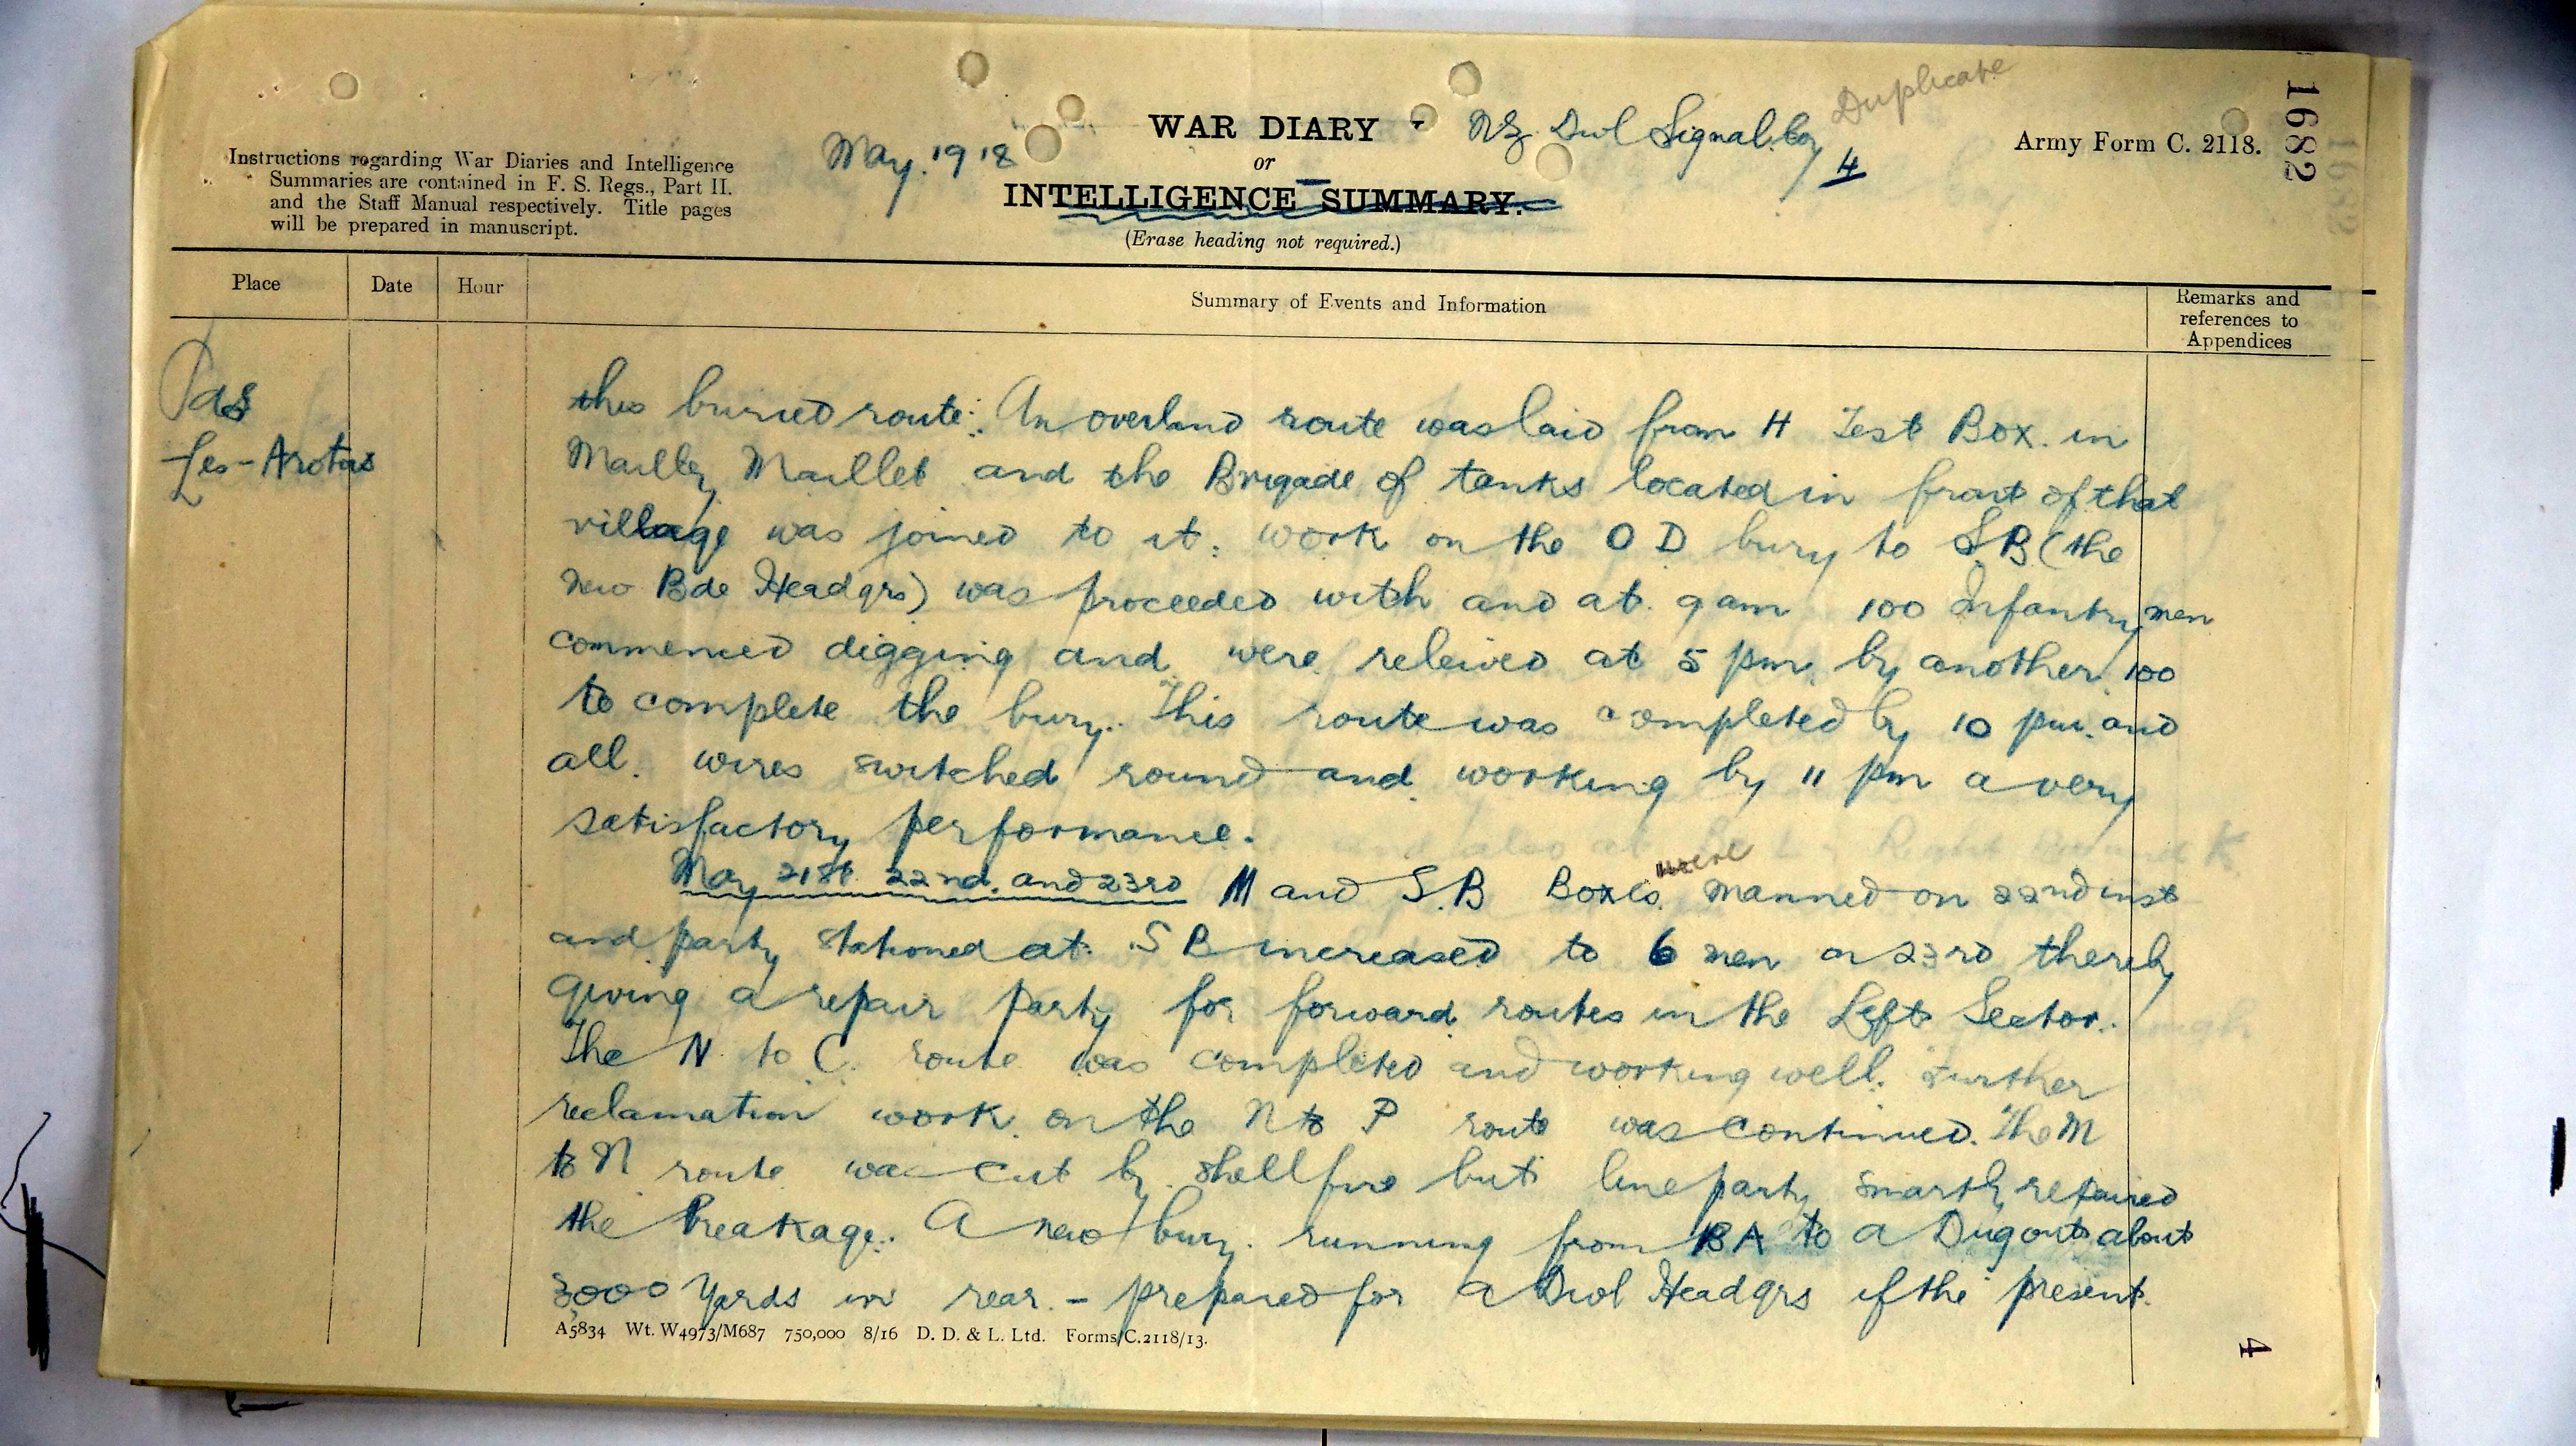 Duplicate
1682
WAR DIARY - NZ. Divl Signal. Coy
May. 1918
or
4
Army Form C. 2118.
INTELLIGENCE SUMMARY.
(Erase heading not required.)
Instructions regarding War Diaries and Intelligence
Summaries are contained in F. S. Regs., Part II.
and the Staff Manual respectively. Title pages
will be prepared in manuscript.
Place
Date
Hour
Summary of Events and Information
Remarks and
references to
Appendices
Pas
Les-Arotas
this buried route. An overland route was laid from H Test Box. in
Mailley Maillet and the Brigade of tanks located in front of that
village was joined to it. Work on the O D bury to SB (the
new Bde Headqrs) was proceeded with and at 9 am 100 Infantry men
commenced digging and were releived at 5 pm by another 100
to complete the bury. This route was completed by 10 pm. and
all. wires switched round and working by 11 pm a very
satisfactory performance.
May 21st 22nd. and 23rd M and S.B Boxes were manned on 22nd inst
and party stationed at S B increased to 6 men on 23rd thereby
giving a repair party for forward routes in the Left Sector.
The N to C. route was completed and working well. Further
reclamation work on the N to P route was continued. The M
to N route was cut by shellfire but line party smartly repaired
the breakage. A new bury running from BA to a Dugout about
3000 yards in rear. - prepared for a Divl Headqrs if the present.
A5834 Wt. W4973/M687 750,000 8/16 D. D. & L. Ltd. Forms/C.2118/13.
4